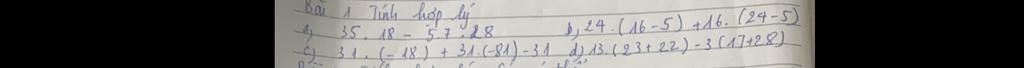 Bài 1 Tính hợp lý
a, 35. 18 - 5.7.28 b, 24.(16-5) +16.(24-5)
c, 31.(-18) + 31.(-81) -31 d, 13.(23+22) -3(17+28)